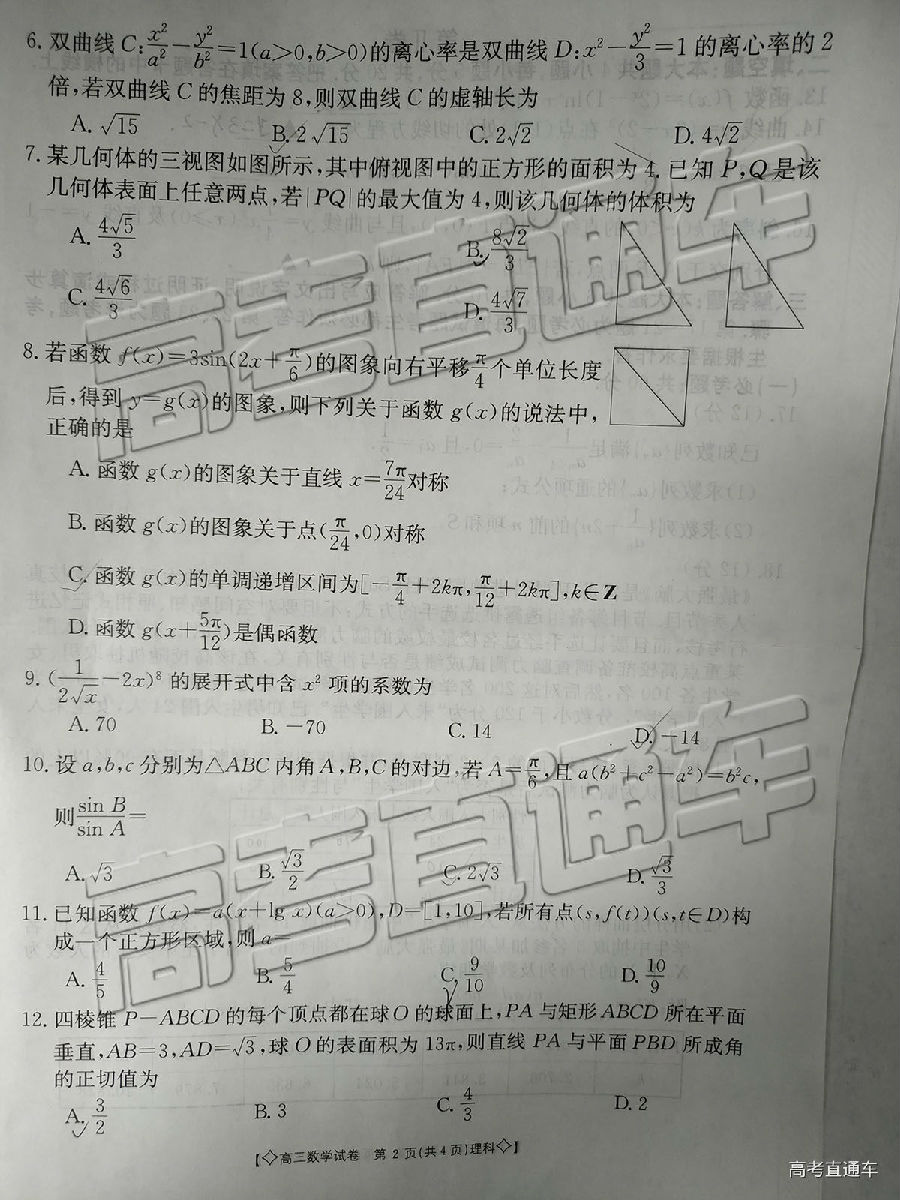 6. 双曲线 C:x²/a²-y²/b²=1(a>0,b>0)的离心率是双曲线 D:x²-y²/3=1 的离心率的 2
倍,若双曲线 C 的焦距为 8,则双曲线 C 的虚轴长为
A. √15 B. 2√15 C. 2√2 D. 4√2
7. 某几何体的三视图如图所示,其中俯视图中的正方形的面积为 4. 已知 P,Q 是该
几何体表面上任意两点,若|PQ|的最大值为 4,则该几何体的体积为
A. 4√5/3 B. 8√2/3
C. 4√6/3 D. 4√7/3
8. 若函数 f(x)=3sin(2x+π/6)的图象向右平移π/4个单位长度
后,得到 y=g(x)的图象,则下列关于函数 g(x)的说法中,
正确的是
A. 函数 g(x)的图象关于直线 x=7π/24对称
B. 函数 g(x)的图象关于点(π/24,0)对称
C. 函数 g(x)的单调递增区间为[-π/4+2kπ,π/12+2kπ],k∈Z
D. 函数 g(x+5π/12)是偶函数
9. (1/(2√x)-2x)⁸ 的展开式中含 x² 项的系数为
A. 70 B. -70 C. 14 D. -14
10. 设 a,b,c 分别为△ABC 内角 A,B,C 的对边,若 A=π/6,且 a(b²+c²-a²)=b²c,
则sin B/sin A=
A. √3 B. √3/2 C. 2√3 D. √3/3
11. 已知函数 f(x)=a(x+lg x)(a>0),D=[1,10],若所有点(s,f(t))(s,t∈D)构
成一个正方形区域,则 a=
A. 4/5 B. 5/4 C. 9/10 D. 10/9
12. 四棱锥 P-ABCD 的每个顶点都在球 O 的球面上,PA 与矩形 ABCD 所在平面
垂直,AB=3,AD=√3,球 O 的表面积为 13π,则直线 PA 与平面 PBD 所成角
的正切值为
A. 3/2 B. 3 C. 4/3 D. 2
【◇高三数学试卷 第 2 页(共 4 页)理科◇】
高考直通车
高考直通车
高考直通车